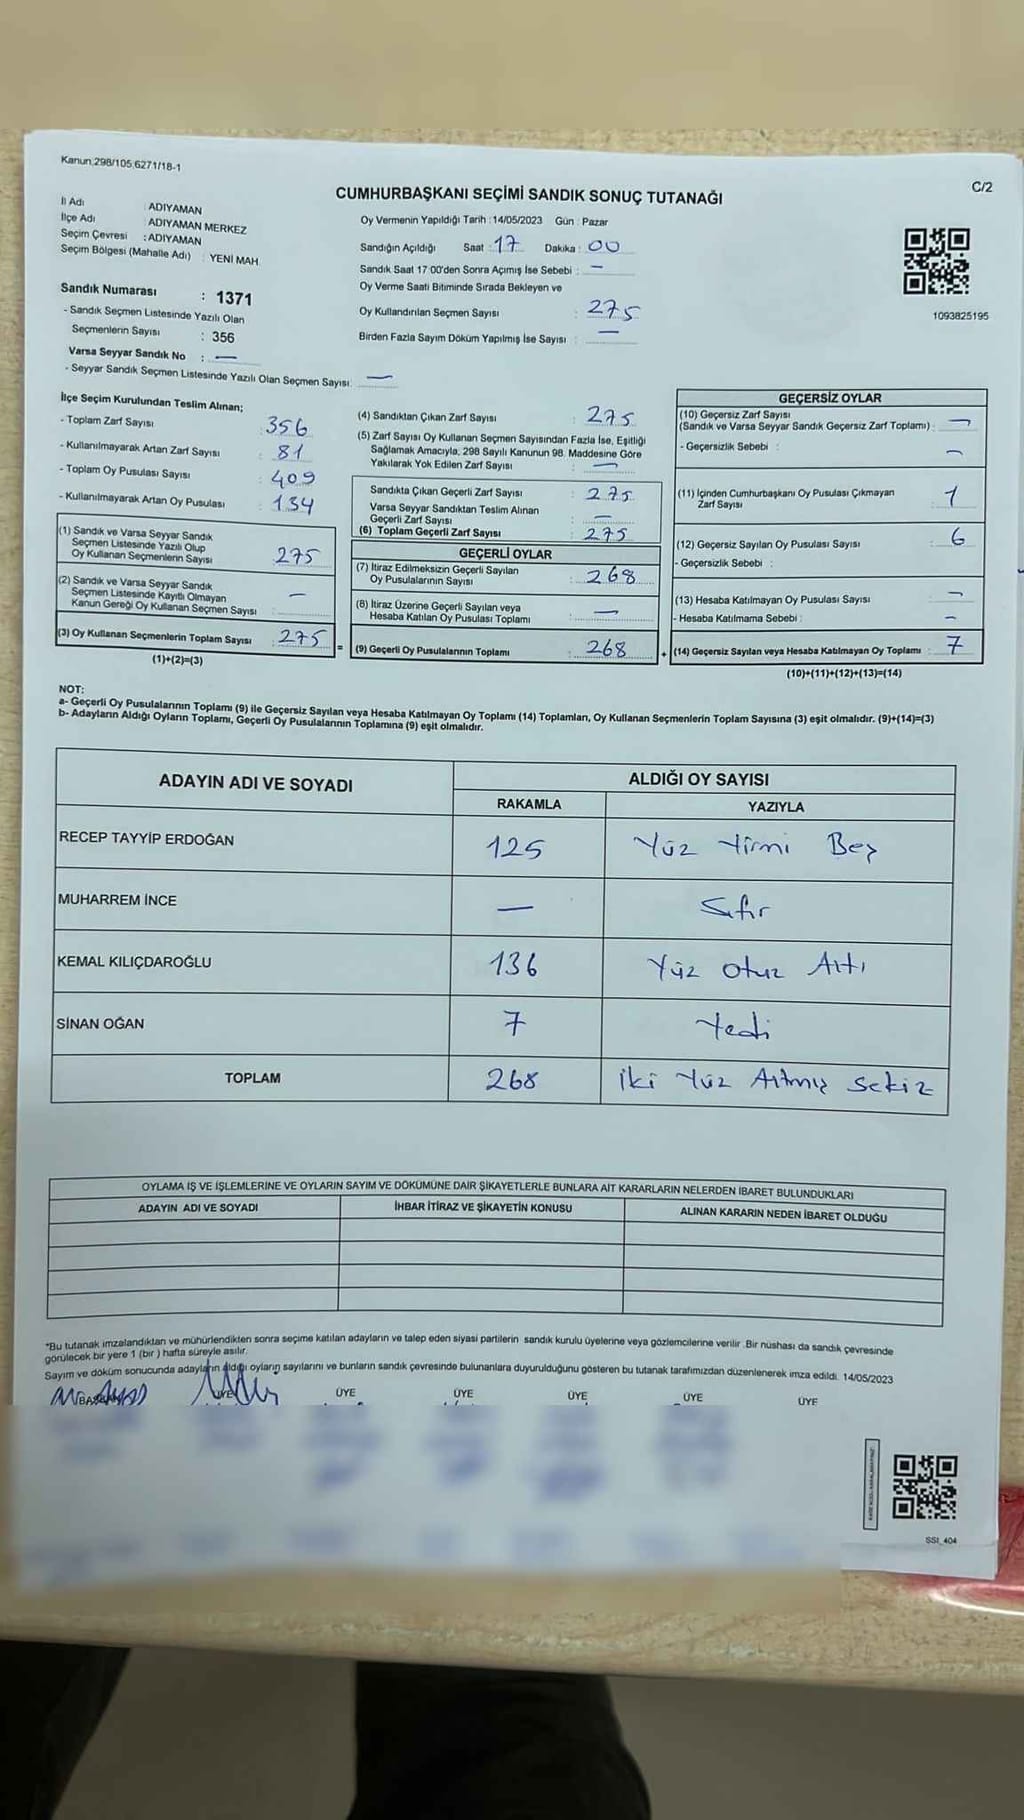 Kanun:298/105,6271/18-1
C/2
CUMHURBAŞKANI SEÇİMİ SANDIK SONUÇ TUTANAĞI
İl Adı : ADIYAMAN
İlçe Adı : ADIYAMAN MERKEZ
Seçim Çevresi : ADIYAMAN
Seçim Bölgesi (Mahalle Adı) : YENİ MAH.
Sandık Numarası : 1371
- Sandık Seçmen Listesinde Yazılı Olan
Seçmenlerin Sayısı : 356
Varsa Seyyar Sandık No : —
- Seyyar Sandık Seçmen Listesinde Yazılı Olan Seçmen Sayısı: —
Oy Vermenin Yapıldığı Tarih :14/05/2023 Gün : Pazar
Sandığın Açıldığı Saat : 17 Dakika : 00
Sandık Saat 17:00'den Sonra Açımış İse Sebebi : —
Oy Verme Saati Bitiminde Sırada Bekleyen ve
Oy Kullandırılan Seçmen Sayısı : 275
Birden Fazla Sayım Döküm Yapılmış İse Sayısı : —
1093825195
İlçe Seçim Kurulundan Teslim Alınan;
- Toplam Zarf Sayısı : 356
- Kullanılmayarak Artan Zarf Sayısı : 81
- Toplam Oy Pusulası Sayısı : 409
- Kullanılmayarak Artan Oy Pusulası : 134
(1) Sandık ve Varsa Seyyar Sandık
Seçmen Listesinde Yazılı Olup
Oy Kullanan Seçmenlerin Sayısı : 275
(2) Sandık ve Varsa Seyyar Sandık
Seçmen Listesinde Kayıtlı Olmayan
Kanun Gereği Oy Kullanan Seçmen Sayısı : —
(3) Oy Kullanan Seçmenlerin Toplam Sayısı : 275 =
(1)+(2)=(3)
(4) Sandıktan Çıkan Zarf Sayısı : 275
(5) Zarf Sayısı Oy Kullanan Seçmen Sayısından Fazla İse, Eşitliği
Sağlamak Amacıyla, 298 Sayılı Kanunun 98. Maddesine Göre
Yakılarak Yok Edilen Zarf Sayısı : —
Sandıkta Çıkan Geçerli Zarf Sayısı : 275
Varsa Seyyar Sandıktan Teslim Alınan
Geçerli Zarf Sayısı : —
(6) Toplam Geçerli Zarf Sayısı : 275
GEÇERLİ OYLAR
(7) İtiraz Edilmeksizin Geçerli Sayılan
Oy Pusulalarının Sayısı : 268
(8) İtiraz Üzerine Geçerli Sayılan veya
Hesaba Katılan Oy Pusulası Toplamı : —
(9) Geçerli Oy Pusulalarının Toplamı : 268 +
GEÇERSİZ OYLAR
(10) Geçersiz Zarf Sayısı
(Sandık ve Varsa Seyyar Sandık Geçersiz Zarf Toplamı) : —
- Geçersizlik Sebebi : —
(11) İçinden Cumhurbaşkanı Oy Pusulası Çıkmayan
Zarf Sayısı : 1
(12) Geçersiz Sayılan Oy Pusulası Sayısı : 6
- Geçersizlik Sebebi :
(13) Hesaba Katılmayan Oy Pusulası Sayısı : —
- Hesaba Katılmama Sebebi : —
(14) Geçersiz Sayılan veya Hesaba Katılmayan Oy Toplamı : 7
(10)+(11)+(12)+(13)=(14)
NOT:
a- Geçerli Oy Pusulalarının Toplamı (9) ile Geçersiz Sayılan veya Hesaba Katılmayan Oy Toplamı (14) Toplamları, Oy Kullanan Seçmenlerin Toplam Sayısına (3) eşit olmalıdır. (9)+(14)=(3)
b- Adayların Aldığı Oyların Toplamı, Geçerli Oy Pusulalarının Toplamına (9) eşit olmalıdır.
ADAYIN ADI VE SOYADI
ALDIĞI OY SAYISI
RAKAMLA YAZIYLA
RECEP TAYYİP ERDOĞAN 125 Yüz Yirmi Beş
MUHARREM İNCE — Sıfır
KEMAL KILIÇDAROĞLU 136 Yüz Otuz Altı
SİNAN OĞAN 7 Yedi
TOPLAM 268 İki Yüz Altmış Sekiz
OYLAMA İŞ VE İŞLEMLERİNE VE OYLARIN SAYIM VE DÖKÜMÜNE DAİR ŞİKAYETLERLE BUNLARA AİT KARARLARIN NELERDEN İBARET BULUNDUKLARI
ADAYIN ADI VE SOYADI İHBAR İTİRAZ VE ŞİKAYETİN KONUSU ALINAN KARARIN NEDEN İBARET OLDUĞU
*Bu tutanak imzalandıktan ve mühürlendikten sonra seçime katılan adayların ve talep eden siyasi partilerin sandık kurulu üyelerine veya gözlemcilerine verilir .Bir nüshası da sandık çevresinde
görülecek bir yere 1 (bir ) hafta süreyle asılır.
Sayım ve döküm sonucunda adayların aldığı oyların sayılarını ve bunların sandık çevresinde bulunanlara duyurulduğunu gösteren bu tutanak tarafımızdan düzenlenerek imza edildi. 14/05/2023
ÜYE ÜYE ÜYE ÜYE ÜYE ÜYE
SSI_404